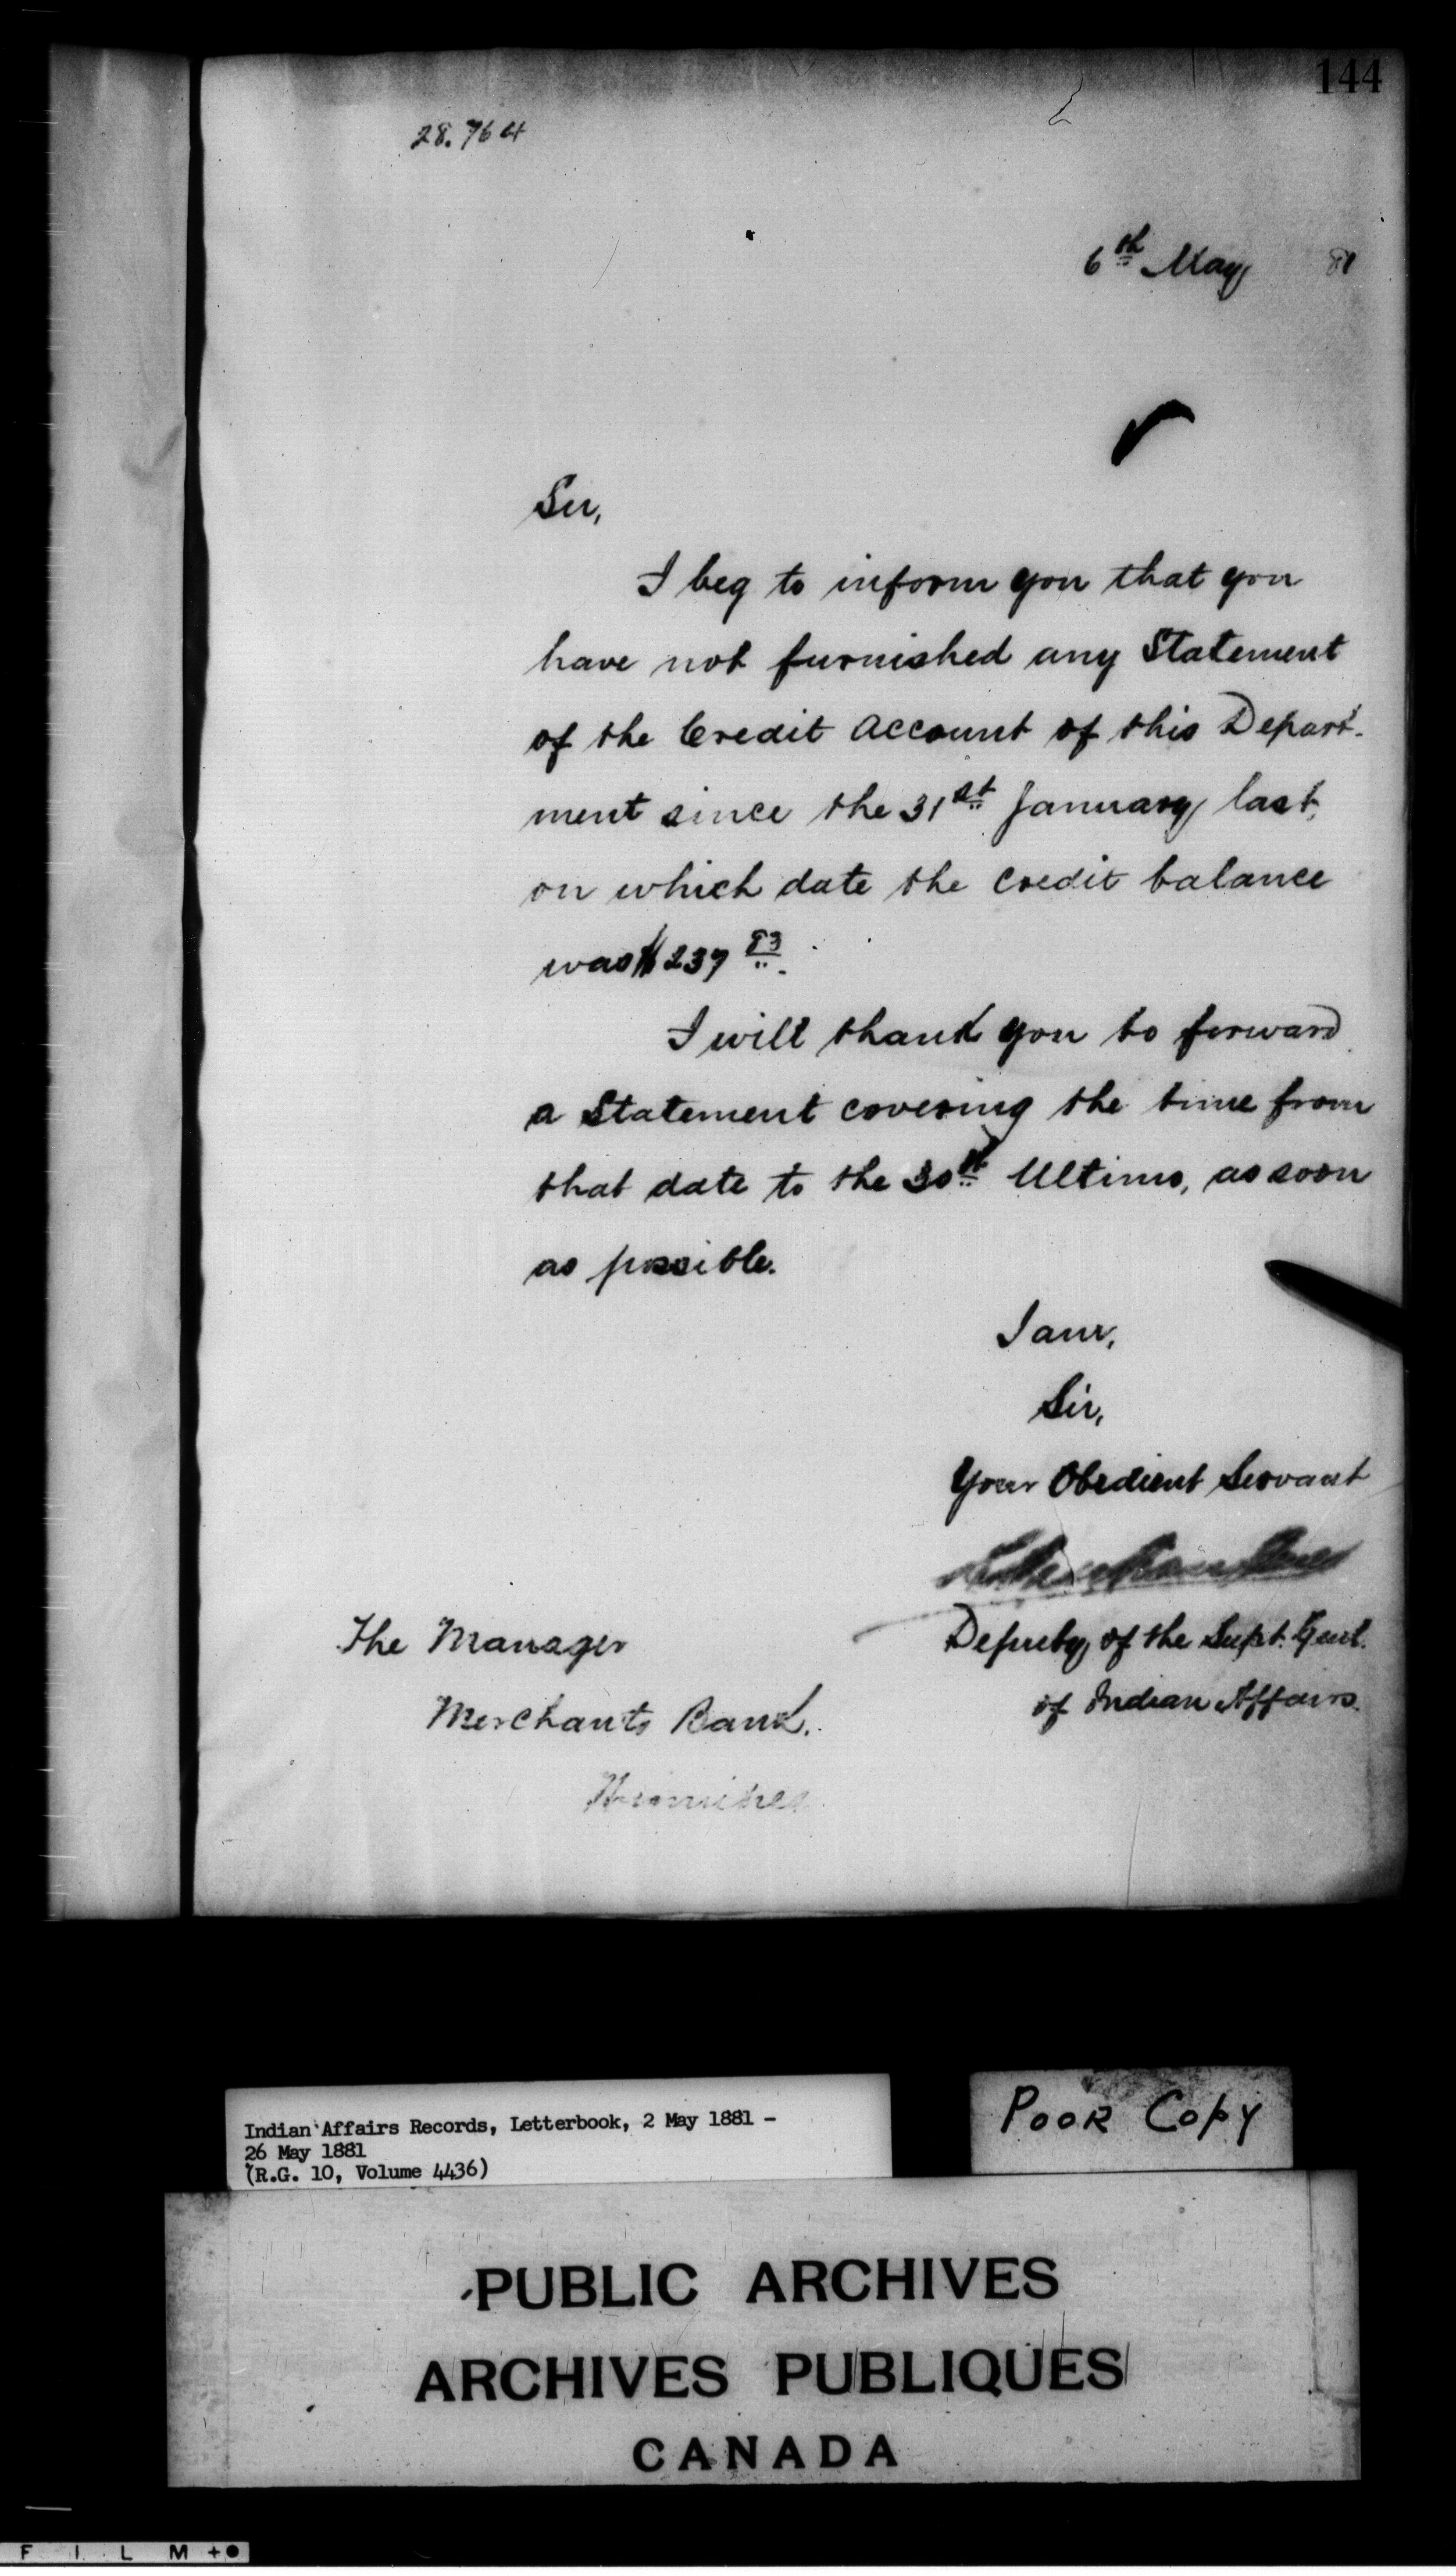 144
28.764
6th May 81
Sir,
I beg to inform you that you
have not furnished any Statement
of the Credit Account of this Depart-
ment since the 31st January last,
on which date the credit balance
was $237 83.
I will thank you to forward
a Statement covering the time from
that date to the 30th Ultimo, as soon
as possible.
I am,
Sir,
Your Obedient Servant
Deputy of the Supt. Genl.
of Indian Affairs.
The Manager
Merchants Bank.
Indian Affairs Records, Letterbook, 2 May 1881 -
26 May 1881
(R.G. 10, Volume 4436)
POOR COPY
PUBLIC ARCHIVES
ARCHIVES PUBLIQUES
CANADA
FILM